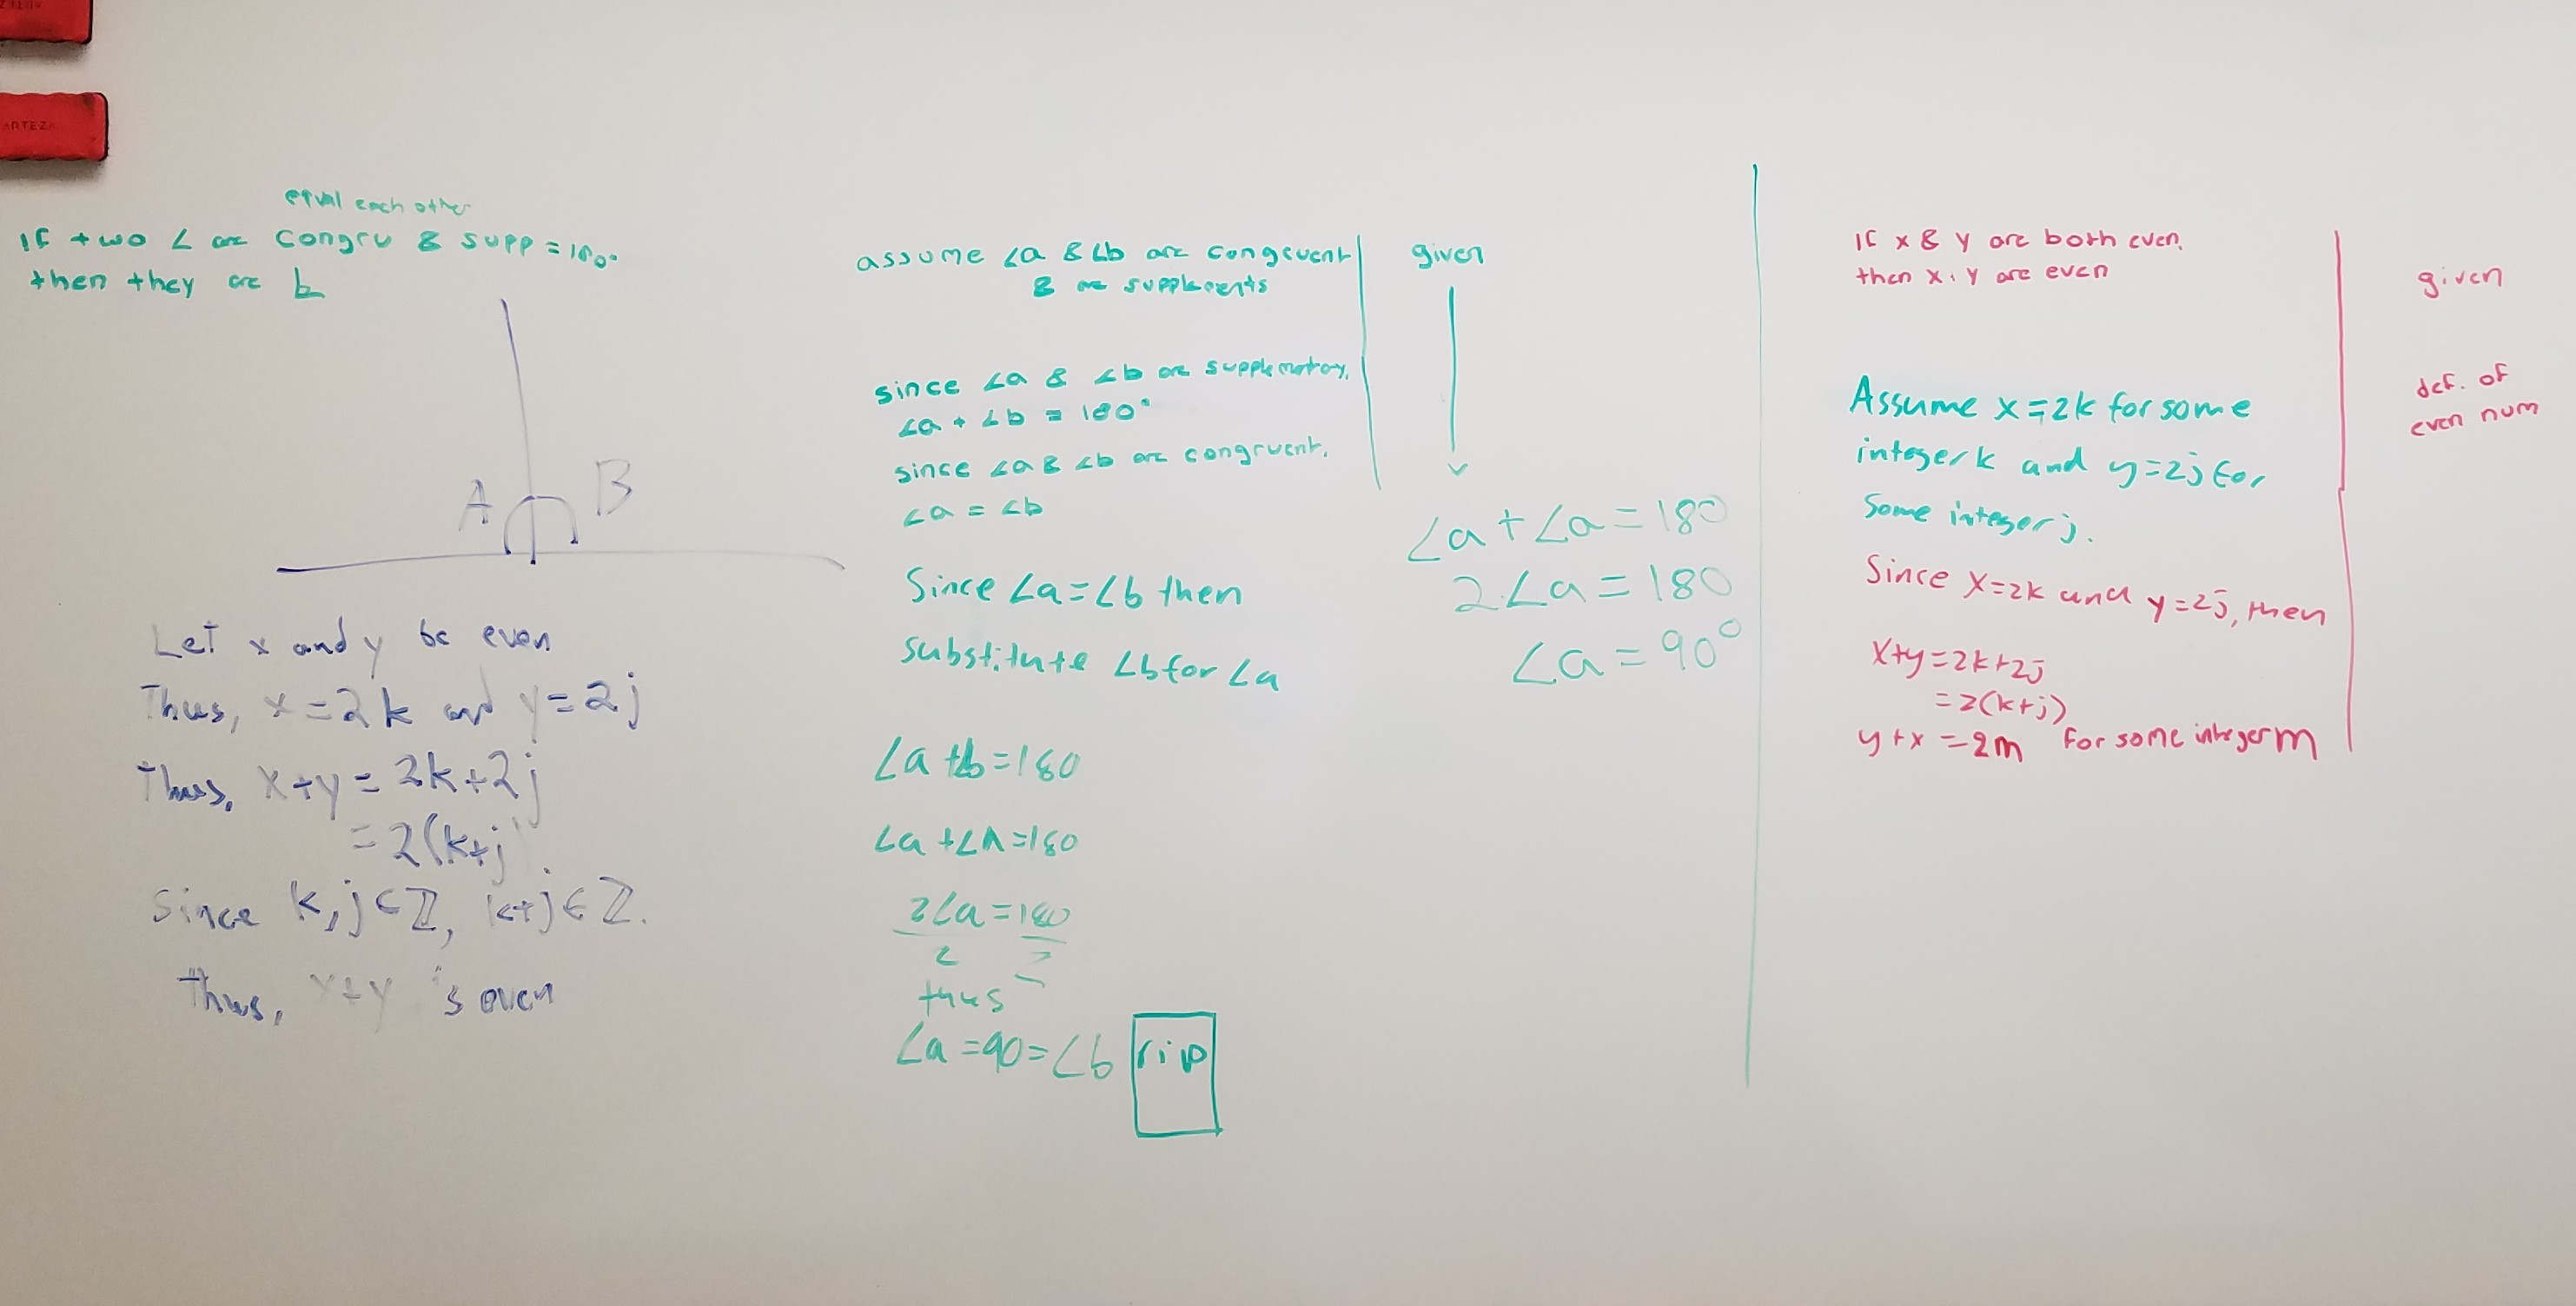 ARTEZA
equal each other
If two ∠ are congru & supp = 180°
then they are
A
B
Let x and y be even
Thus, x = 2k and y = 2j
Thus, x+y = 2k+2j
= 2(k+j)
Since k,j ∈ ℤ, k+j ∈ ℤ.
Thus, x+y is even
assume ∠a & ∠b are congruent
& are supplements
since ∠a & ∠b are supplematray,
∠a + ∠b = 180°
since ∠a & ∠b are congruent,
∠a = ∠b
Since ∠a=∠b then
substitute ∠b for ∠a
∠a +b=180
∠a +∠A=180
2∠a = 180
2 2
thus
∠a =90=∠b rip
given
∠a + ∠a = 180
2·∠a = 180
∠a = 90°
If x & y are both even,
then x · y are even
Assume x=2k for some
integer k and y=2j for
some integer j.
Since x=2k and y=2j, then
x+y=2k+2j
=2(k+j)
y+x =2m for some integer m
given
def. of
even num